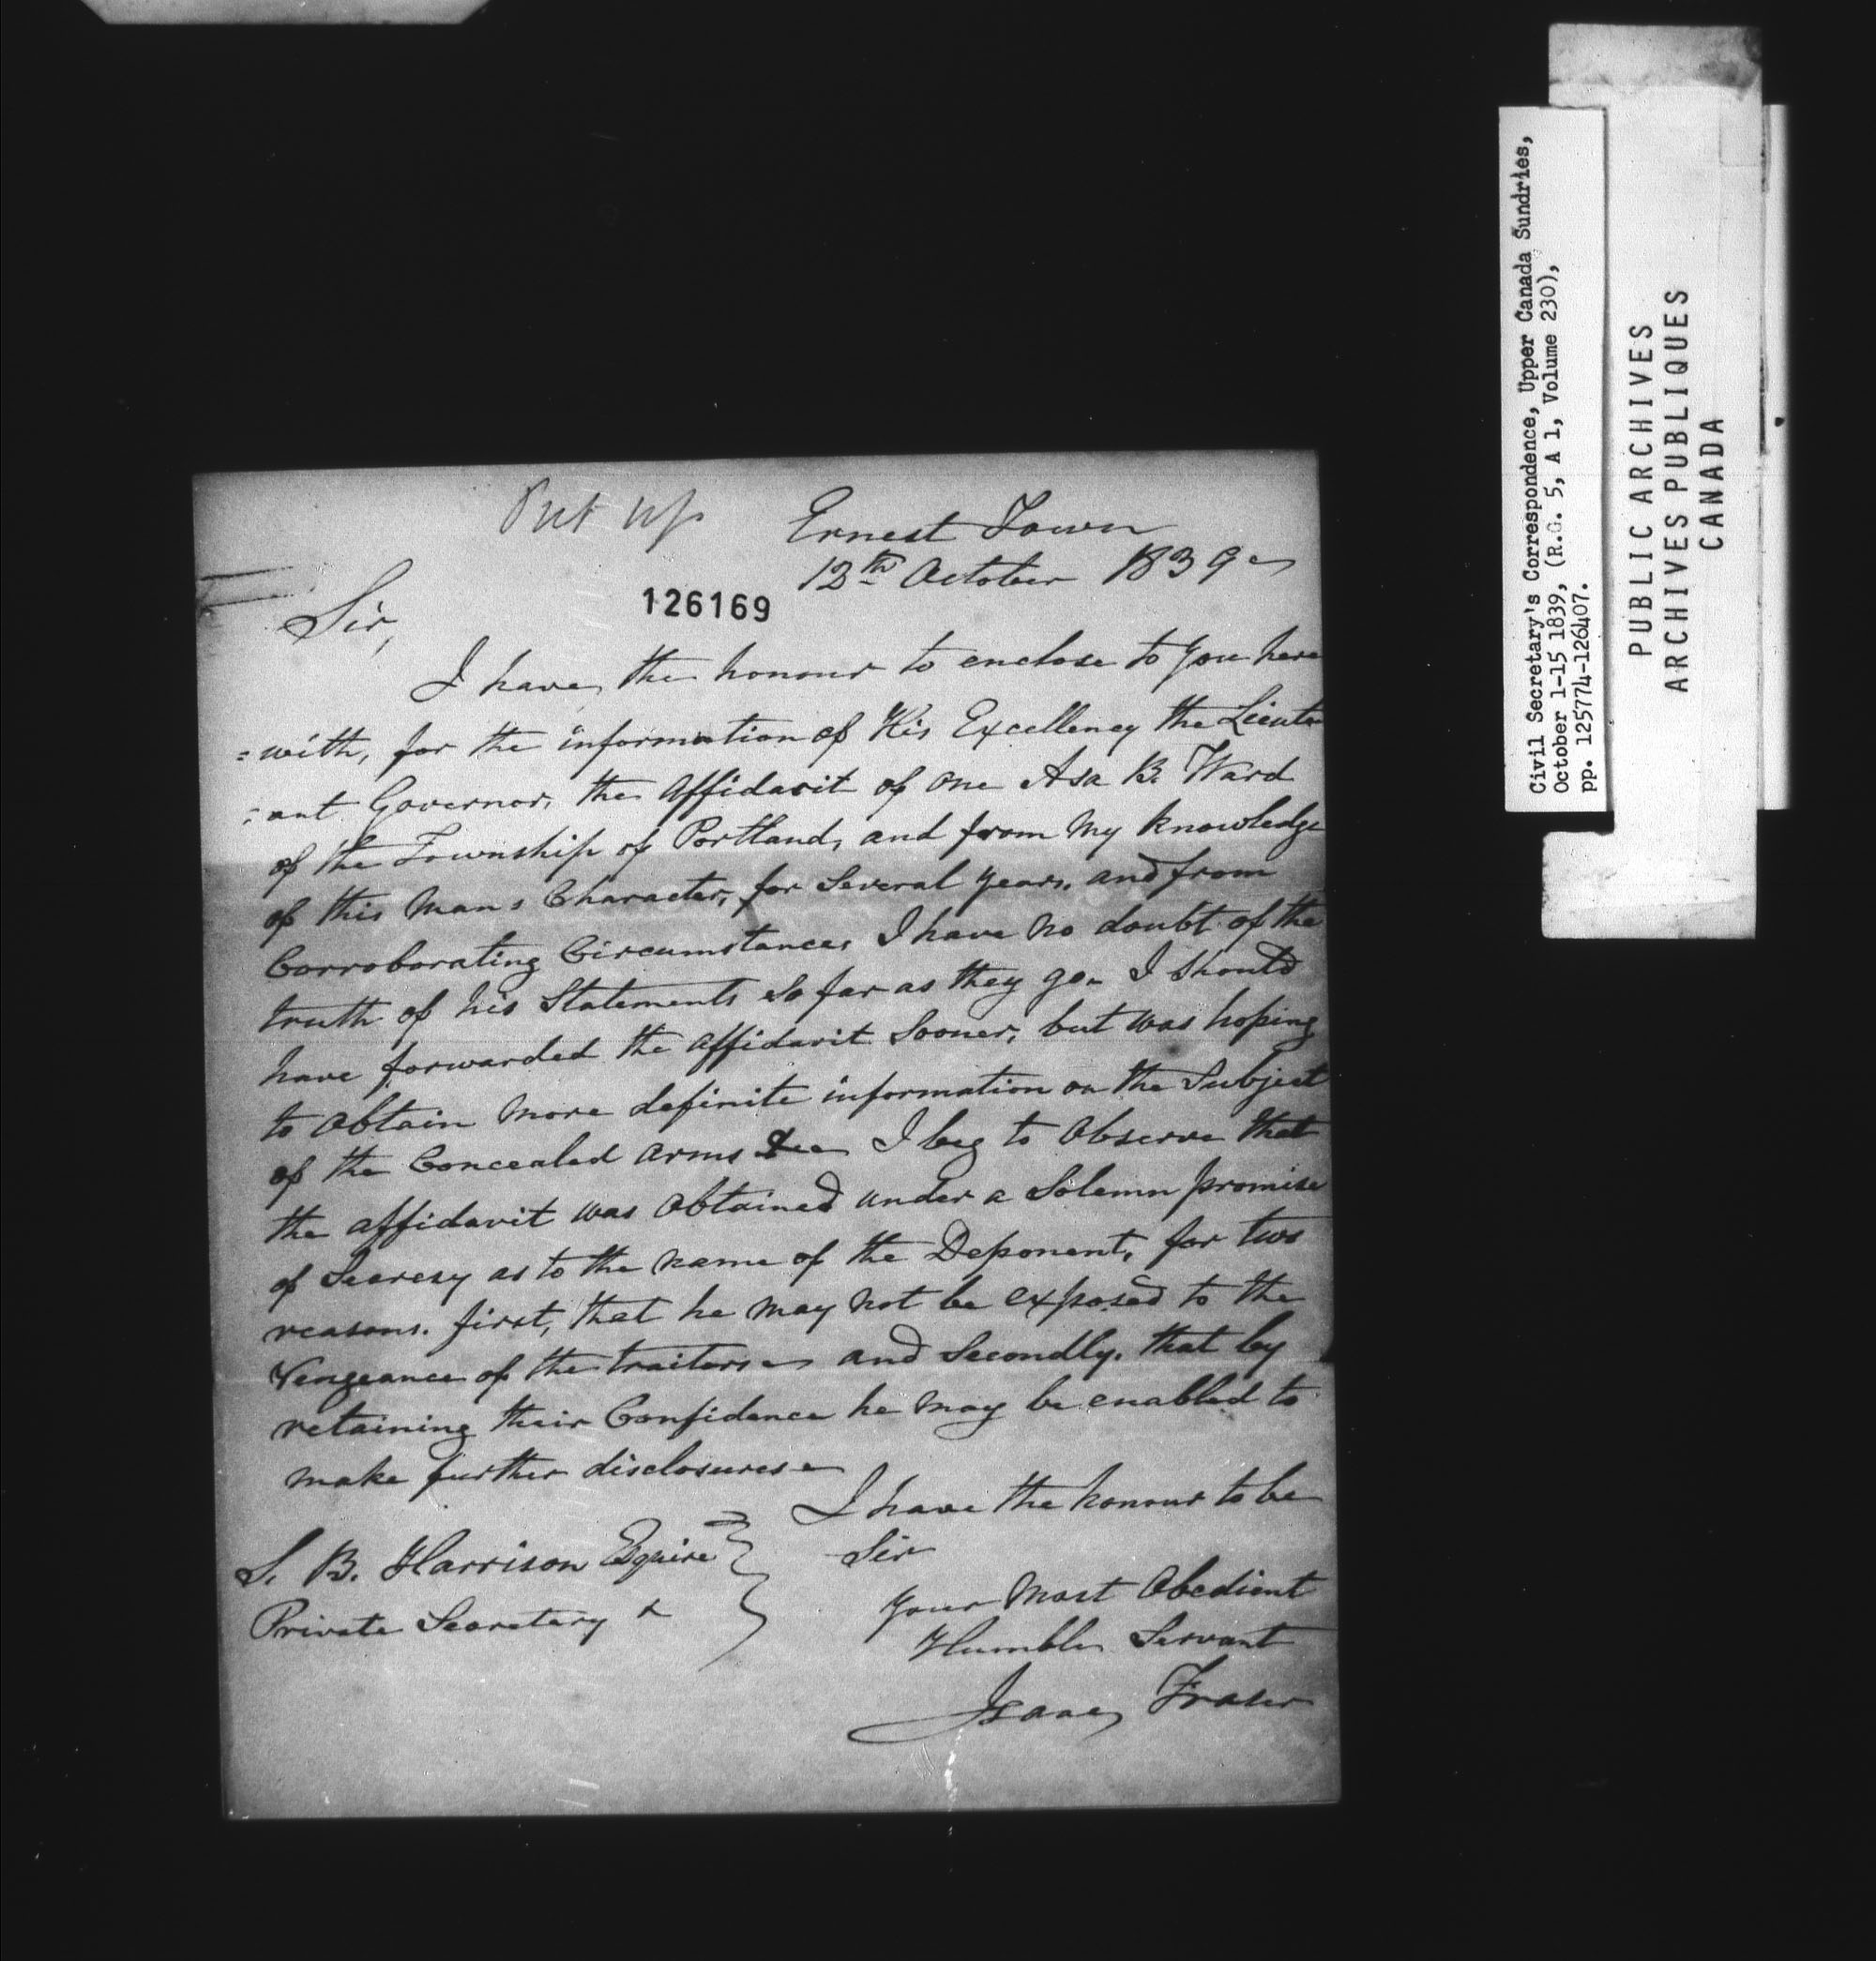 Put up
Ernest Town
12th October 1839
126169
Sir,
I have the honour to enclose to you here
=with, for the information of His Excellency the Lieuten
=ant Governor, the affidavit of one Asa B. Ward
of the Township of Portland, and from my knowledge
of this mans Character, for Several years, and from
Corroborating Circumstances I have no doubt of the
truth of his Statements So far as they go. I Should
have forwarded the affidavit Sooner, but was hoping
to obtain more definite information on the Subject
of the Concealed arms &c I beg to observe that
the affidavit was obtained under a Solemn promise
of Secresy as to the name of the Deponent, for two
reasons. first, that he may not be exposed to the
Vengeance of the traitors and Secondly, that by
retaining their Confidence he may be enabled to
make further disclosures
I have the honour to be
Sir
Your Most Obedient
Humble Servant
Isaac Fraser
S. B. Harrison Esquire
Private Secretary
Civil Secretary's Correspondence, Upper Canada Sundries,
October 1-15 1839, (R.G. 5, A 1, Volume 230),
pp. 125774-126407.
PUBLIC ARCHIVES
ARCHIVES PUBLIQUES
CANADA